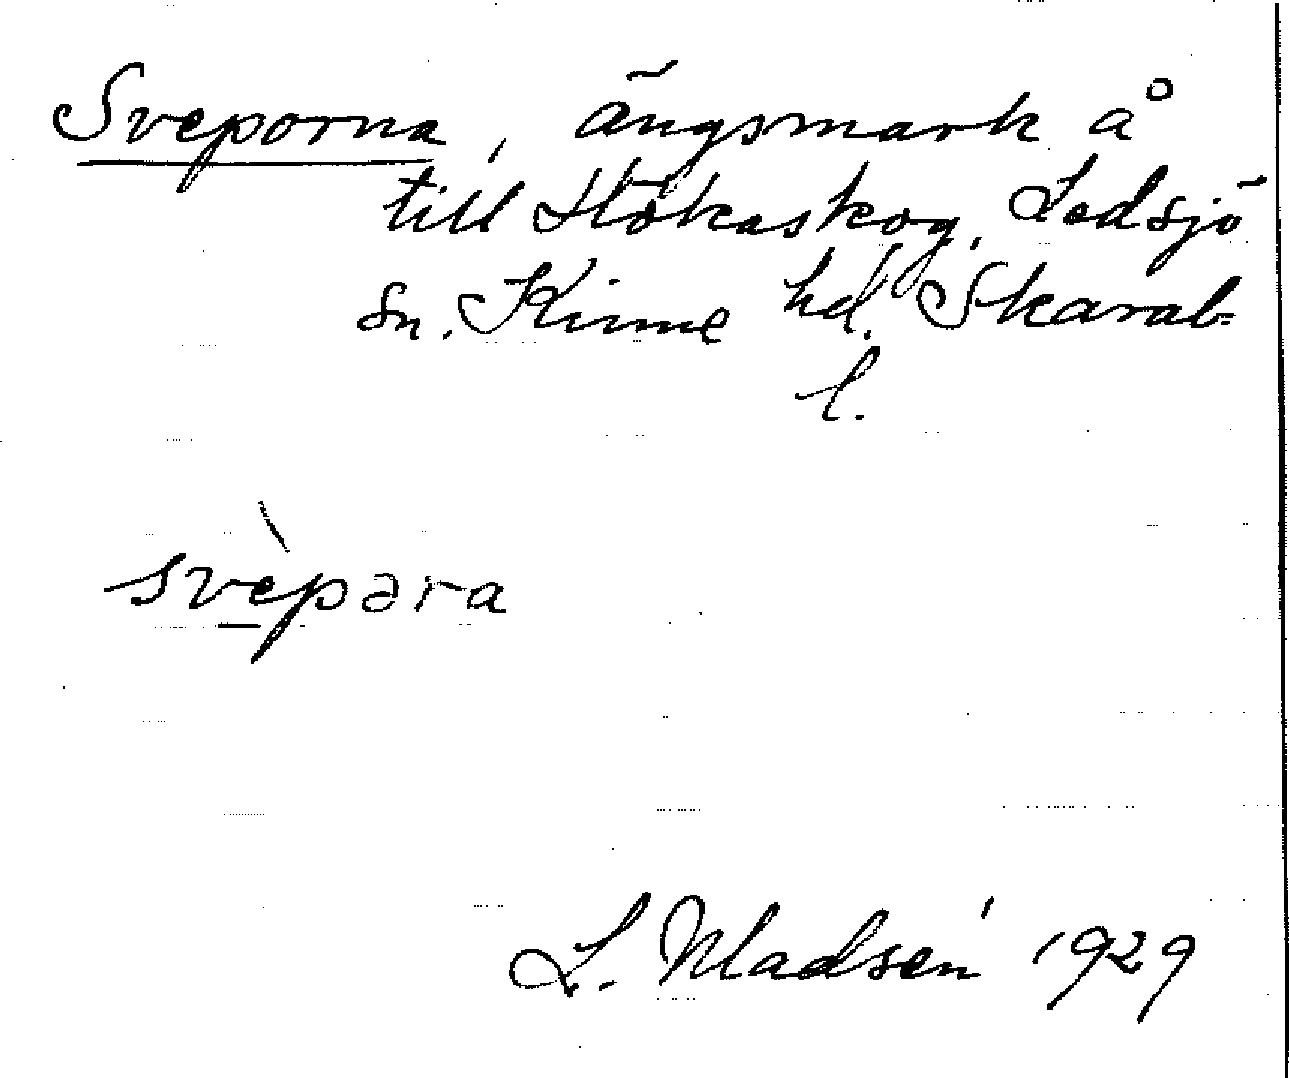 Sveporna, ängsmark å
till Hökaskog, Ledsjö
sn. Kinne hd. Skarab-
l.
svèpəra
L. Madsén 1929